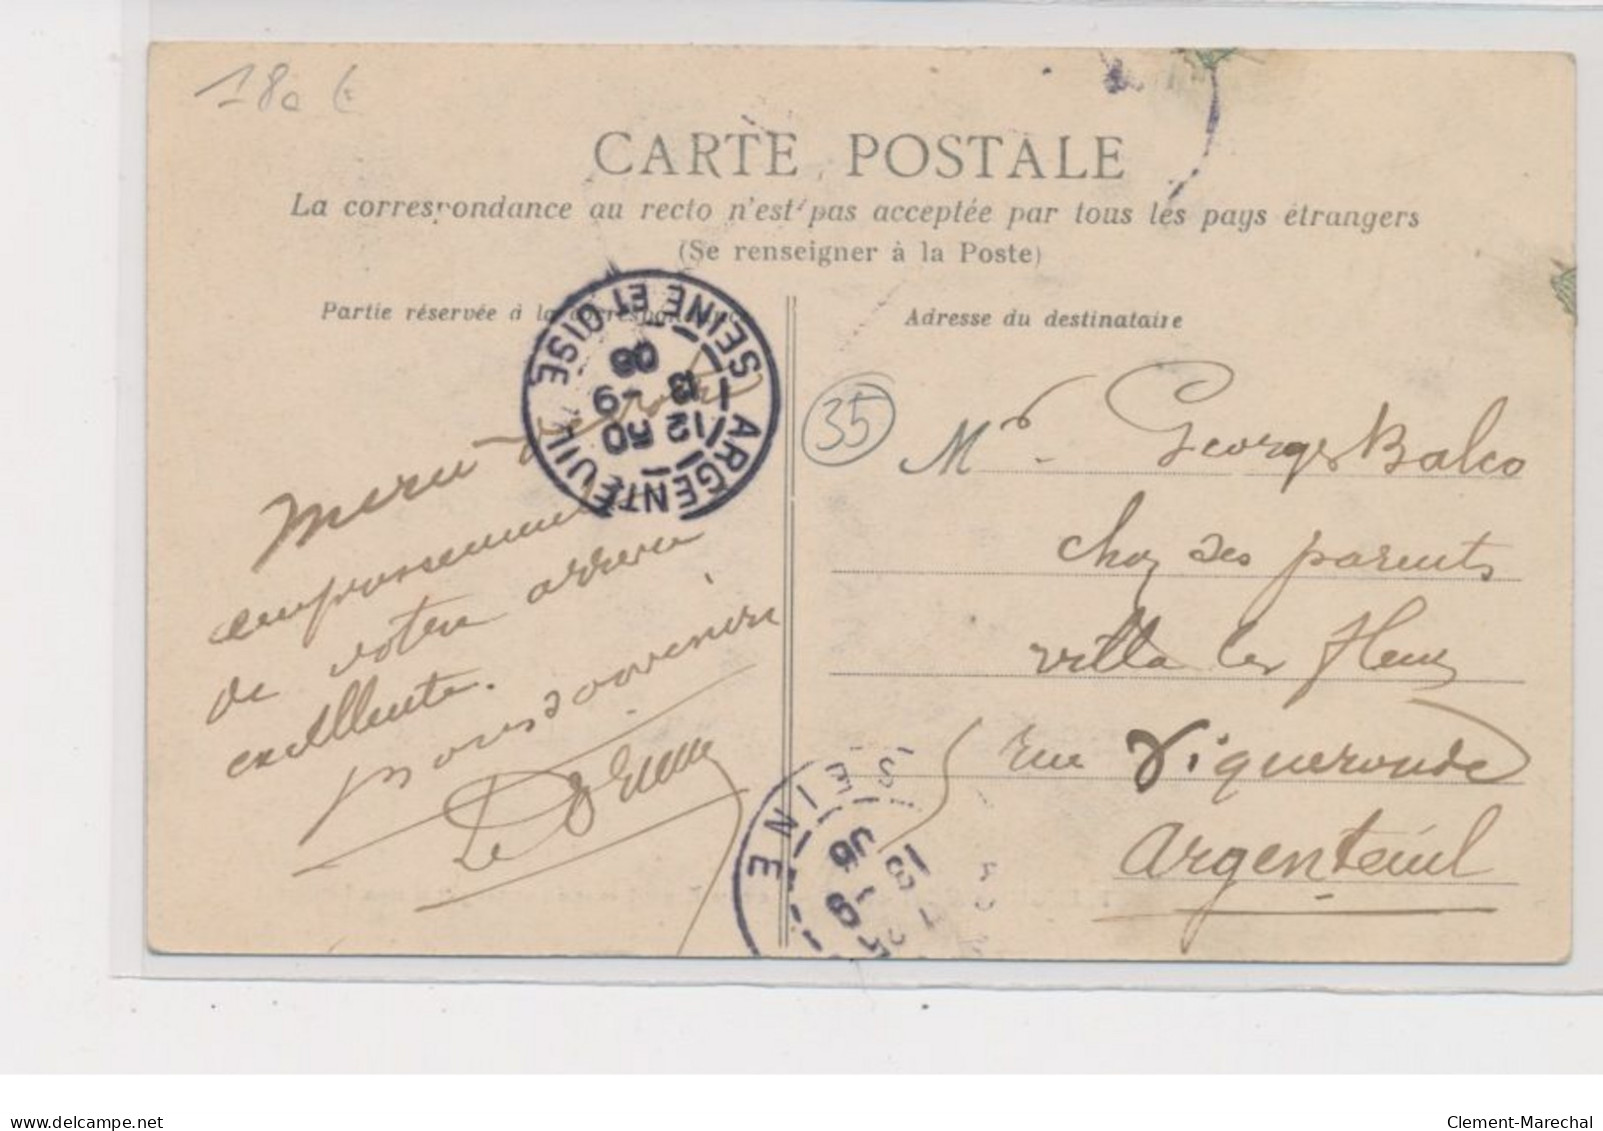 18c €
CARTE POSTALE
La correspondance au recto n'est pas acceptée par tous les pays étrangers
(Se renseigner à la Poste)
Partie réservée à la correspondance
Adresse du destinataire
ARGENTEUIL SEINE ET OISE
12 50
13 -9
06
35
Mr Georges Balco
chez ses parents
villa les fleurs
rue Vigueronde
Argenteuil
Merci de votre
empressement
de votre arrivée
excellente.
bons souvenirs
SEINE
www.delcampe.net
Clement-Marechal